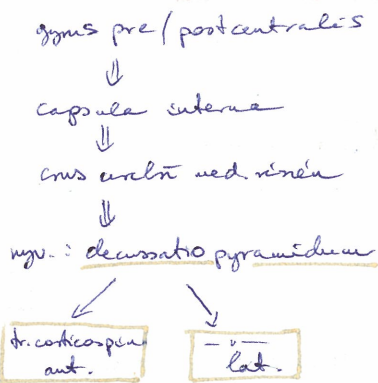 gyrus pre / postcentralis
capsula interna
crus cerebri med. részén
nyv. : decussatio pyramidum
tr. corticospin. — " —
ant. lat.